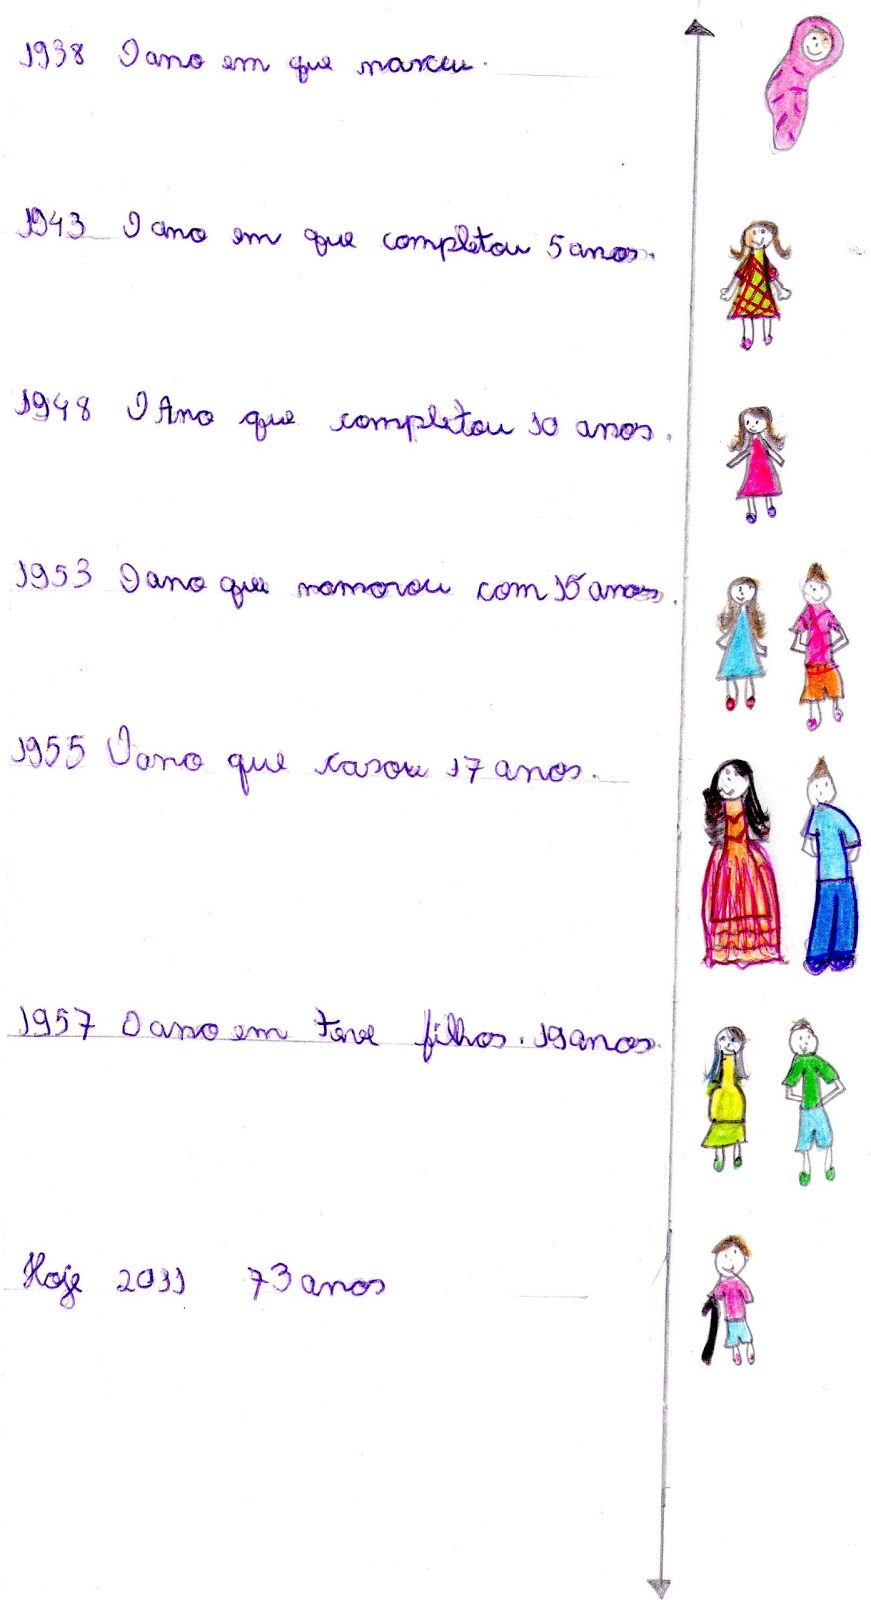 1938 O ano em que nasceu.
1943 O ano em que completou 5 anos.
1948 O Ano que completou 10 anos.
1953 O ano que namorou com 15 anos.
1955 O ano que casou 17 anos.
1957 O ano em teve filhos. 19 anos.
Hoje 2011 73 anos